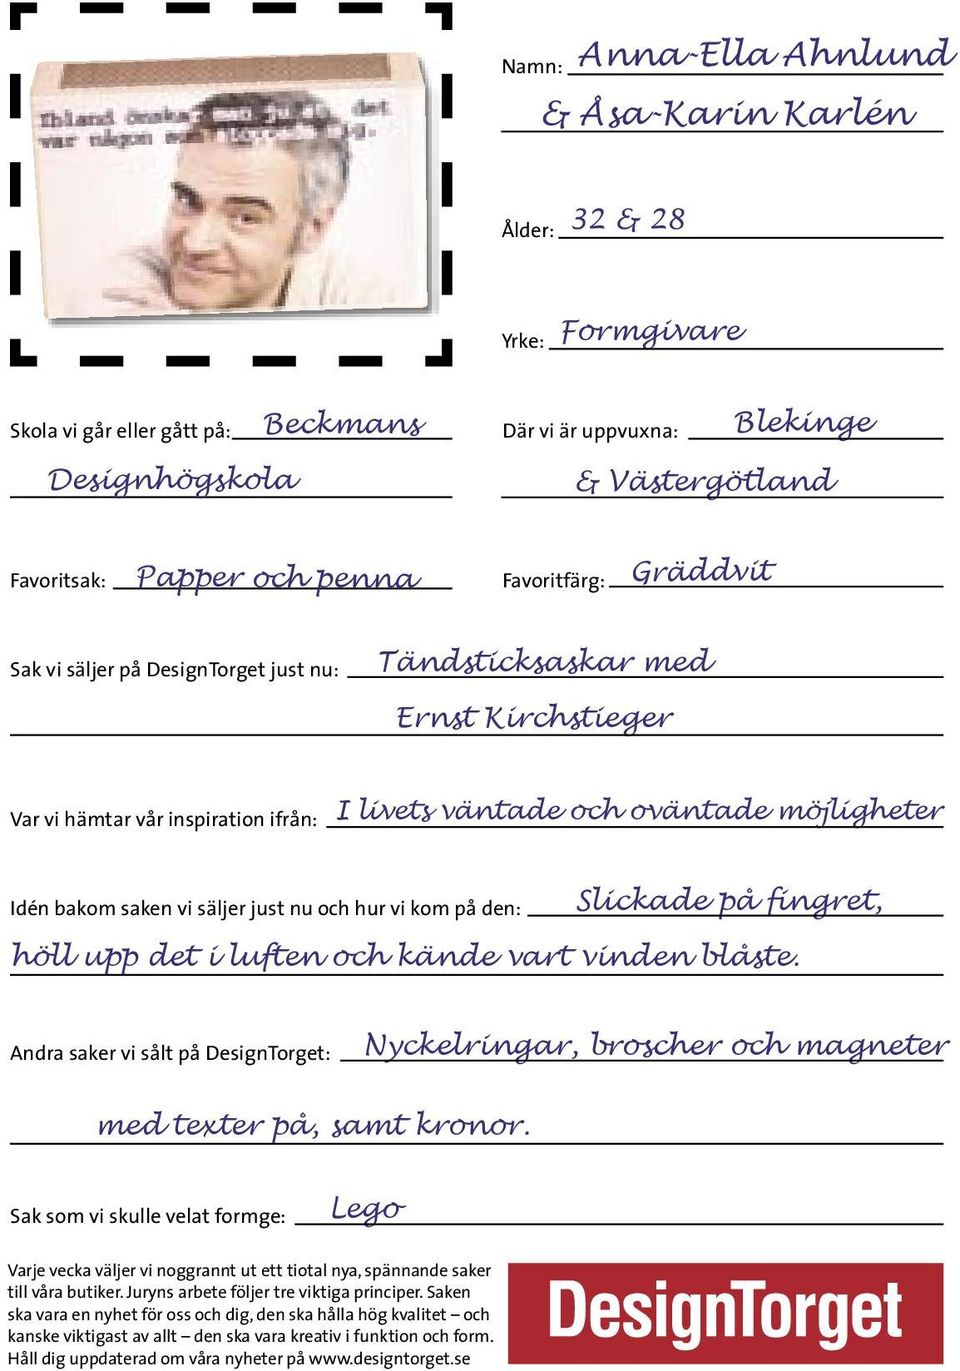 Ibland önska det
var någon
Namn: Anna-Ella Ahnlund
& Åsa-Karin Karlén
Ålder: 32 & 28
Yrke: Formgivare
Skola vi går eller gått på: Beckmans
Designhögskola
Där vi är uppvuxna: Blekinge
& Västergötland
Favoritsak: Papper och penna
Favoritfärg: Gräddvit
Sak vi säljer på DesignTorget just nu: Tändsticksaskar med
Ernst Kirchstieger
Var vi hämtar vår inspiration ifrån: I livets väntade och oväntade möjligheter
Idén bakom saken vi säljer just nu och hur vi kom på den: Slickade på fingret,
höll upp det i luften och kände vart vinden blåste.
Andra saker vi sålt på DesignTorget: Nyckelringar, broscher och magneter
med texter på, samt kronor.
Sak som vi skulle velat formge: Lego
Varje vecka väljer vi noggrannt ut ett tiotal nya, spännande saker
till våra butiker. Juryns arbete följer tre viktiga principer. Saken
ska vara en nyhet för oss och dig, den ska hålla hög kvalitet – och
kanske viktigast av allt – den ska vara kreativ i funktion och form.
Håll dig uppdaterad om våra nyheter på www.designtorget.se
DesignTorget